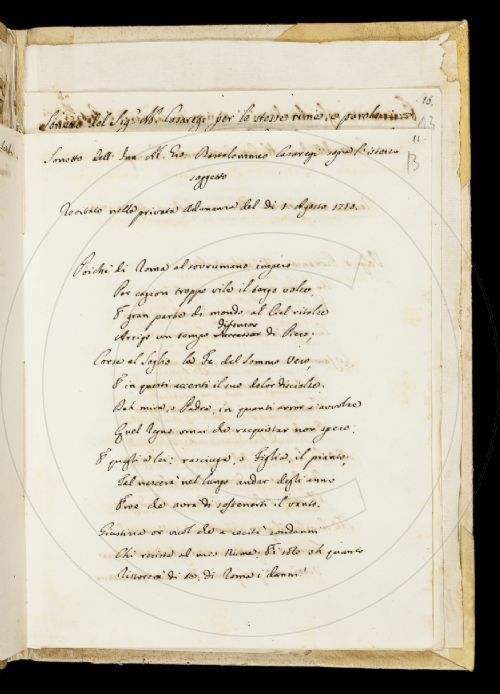 16.
Sonetto del Sig.r Ab. Casaregi per le stesse rime, e parole
Sonetto dell' Ab. Gio. Bartolommeo Casaregi sopra l'istesso
11
B
soggetto
Recitato nella privata Adunanza del dì 1. Agosto 1710.
Poichè di Roma al sovrumano impero
Per cagion troppo vile il tergo volse
E gran parte di mondo al Ciel ritolse
Arrigo un tempo difensor di Piero;
Corse al Soglio la Fe del sommo Vero,
E in questi accenti il suo dolor disciolse.
Deh mira, o Padre, in quanti error s'avvolse
Quel Regno omai che racquistar non spero.
E quegli a lei: rasciuga, o Figlia, il pianto,
Tal nascerà nel lungo andar degli anni
Eroe che avrà di sostenerti il vanto.
Giustizia or vuol che a cecità condanni
Chi resiste al mio Nume. Ei solo oh quanto
Ristorerà di te, di Roma i danni!